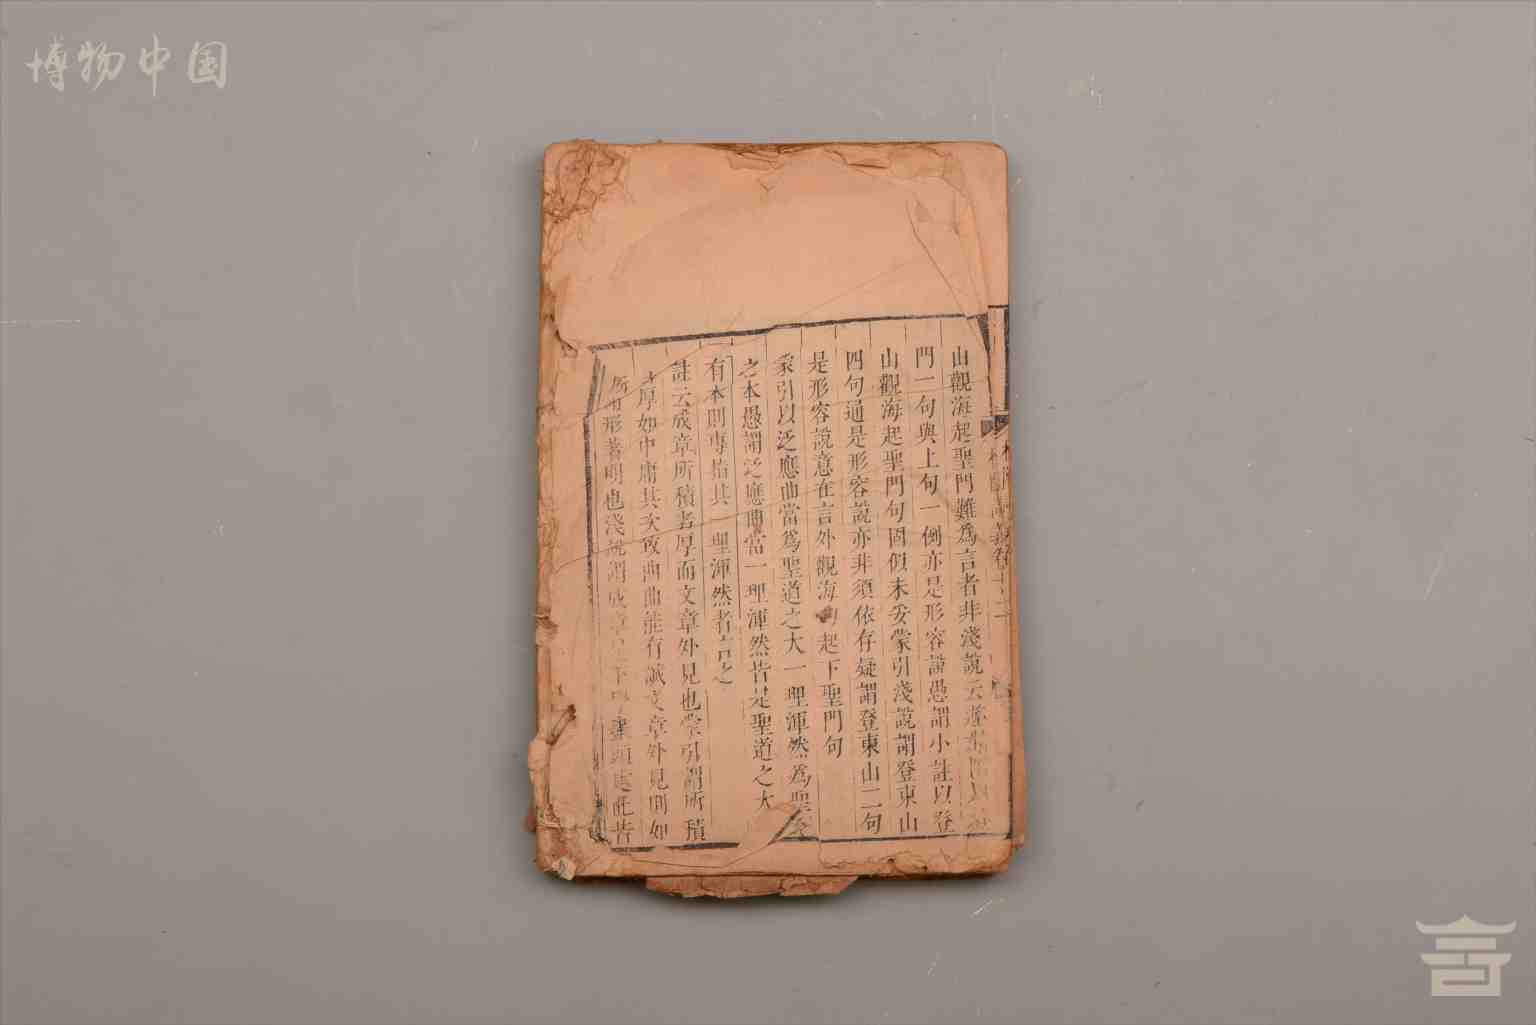 博物中国
山觀海起聖門難為言者非淺說云
門一句與上句一倒亦是形容說愚謂小註以登
山觀海起聖門句固似未妥蒙引淺說謂登東山
四句通是形容說亦非須依存疑謂登東山二句
是形容說意在言外觀海句起下聖門句
蒙引以泛應曲當為聖道之大一理渾然為聖道
之本愚謂泛應曲當一理渾然皆是聖道之大
有本則專指其一理渾然者言之
註云成章所積者厚而文章外見也蒙引謂所積
厚如中庸其次致曲曲能有誠文章外見則如
形著明也淺說謂成章是